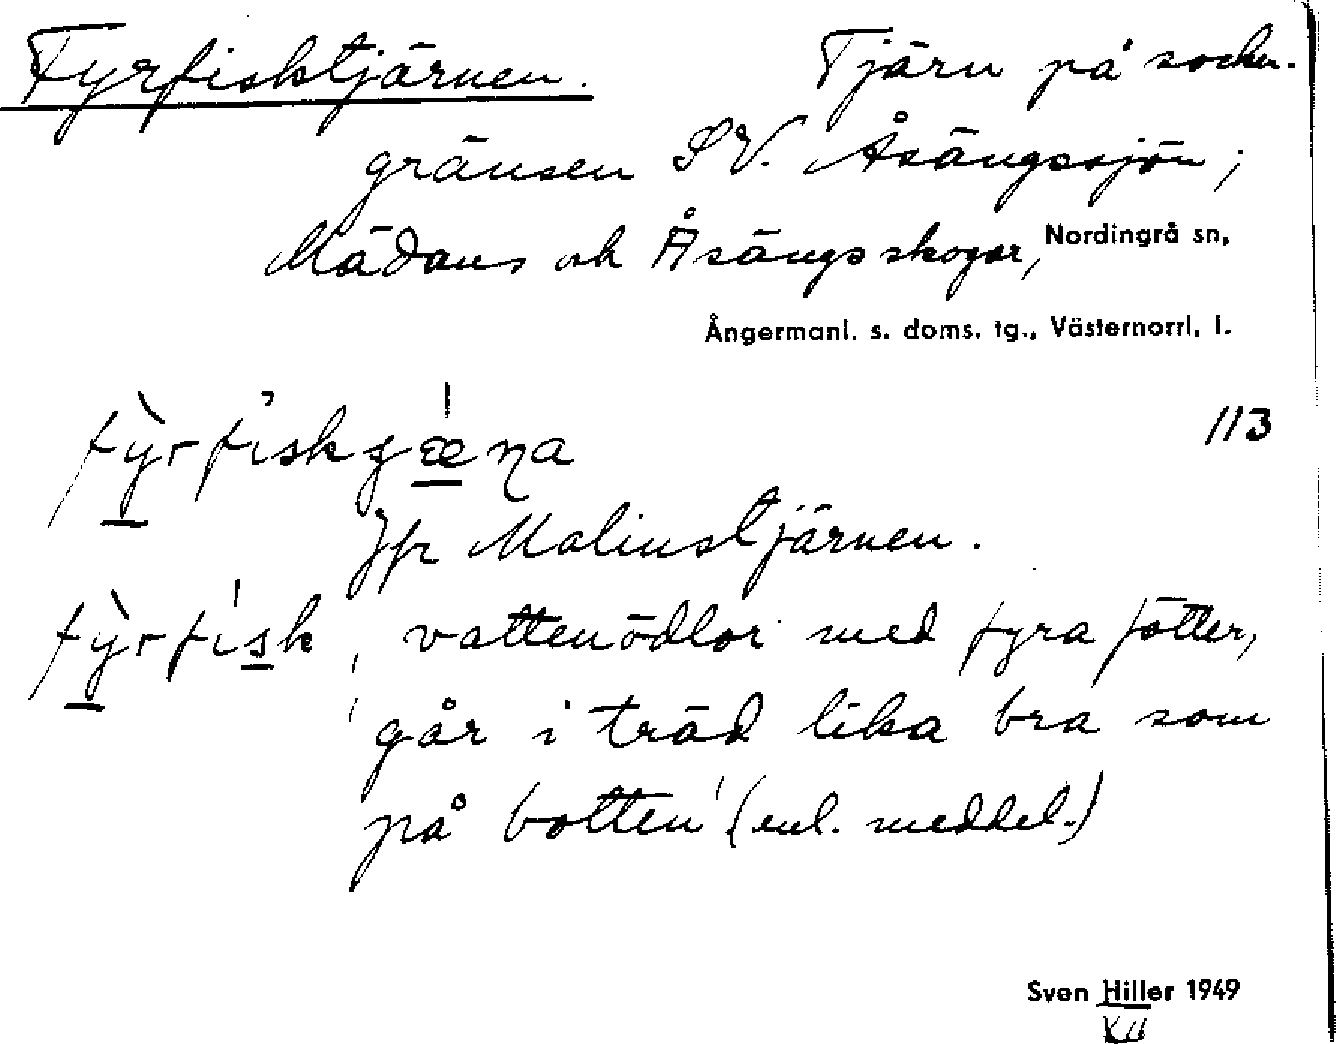 Fyrfisktjärnen. Tjärn på socken-
gränsen SV. Åsängssjön;
Mädans och Åsängsskogar, Nordingrå sn,
Ångermanl. s. doms. tg., Västernorrl. l.
113
Jfr Malinstjärnen.
fỳrfisk, 'vattenödlor med fyra fötter,
går i träd lika bra som
på botten' (enl. meddel.)
Sven Hiller 1949
XII